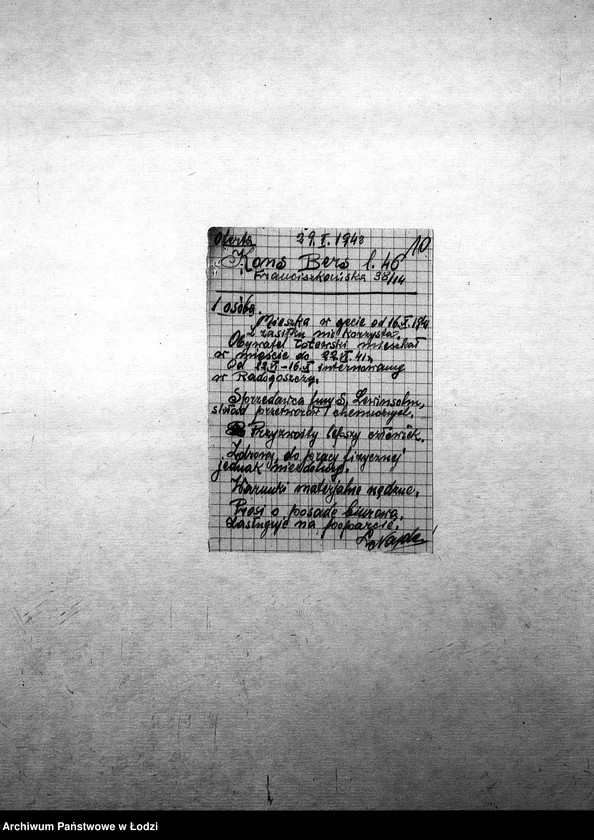 Oferta 29.I.1942 10
Kons Bers l. 46
Franciszkańska 38/14
1 osoba.
Mieszka w gecie od 16.X.1941
z zasiłku nie korzysta.
Obywatel Łotewski mieszkał
w mieście do 22.VI.41.
Od 22.VI-16.X internowany
w Radogoszczy.
Sprzedawca firmy S. Lewinsohn,
skład przetworów chemicznych.
Przyzwoity lepszy człowiek.
Zdrowy, do pracy fizycznej
jednak niezdolny.
Warunki materjalne nędzne.
Prosi o posadę biurową.
Zasługuje na poparcie.
Archiwum Państwowe w Łodzi